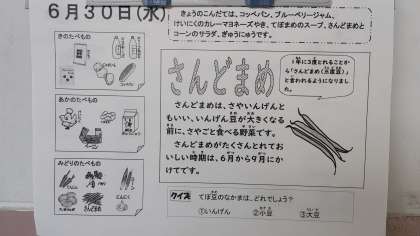 6月30日(水)
きょうのこんだては、コッペパン、ブルーベリージャム、
けいにくのカレーマヨネーズやき、てぼまめのスープ、さんどまめと
コーンのサラダ、ぎゅうにゅうです。
きのたべもの
あかのたべもの
みどりのたべもの
さんどまめ
1年に3度とれることか
ら「さんどまめ(三度豆)」と
言われるようになりまし
た。
さんどまめは、さやいんげんと
もいい、いんげん豆が大きくなる
前に、さやごと食べる野菜です。
さんどまめがたくさんとれてお
いしい時期は、6月から9月にか
けてです。
クイズ てぼ豆のなかまは、どれでしょう?
①いんげん ②小豆 ③大豆